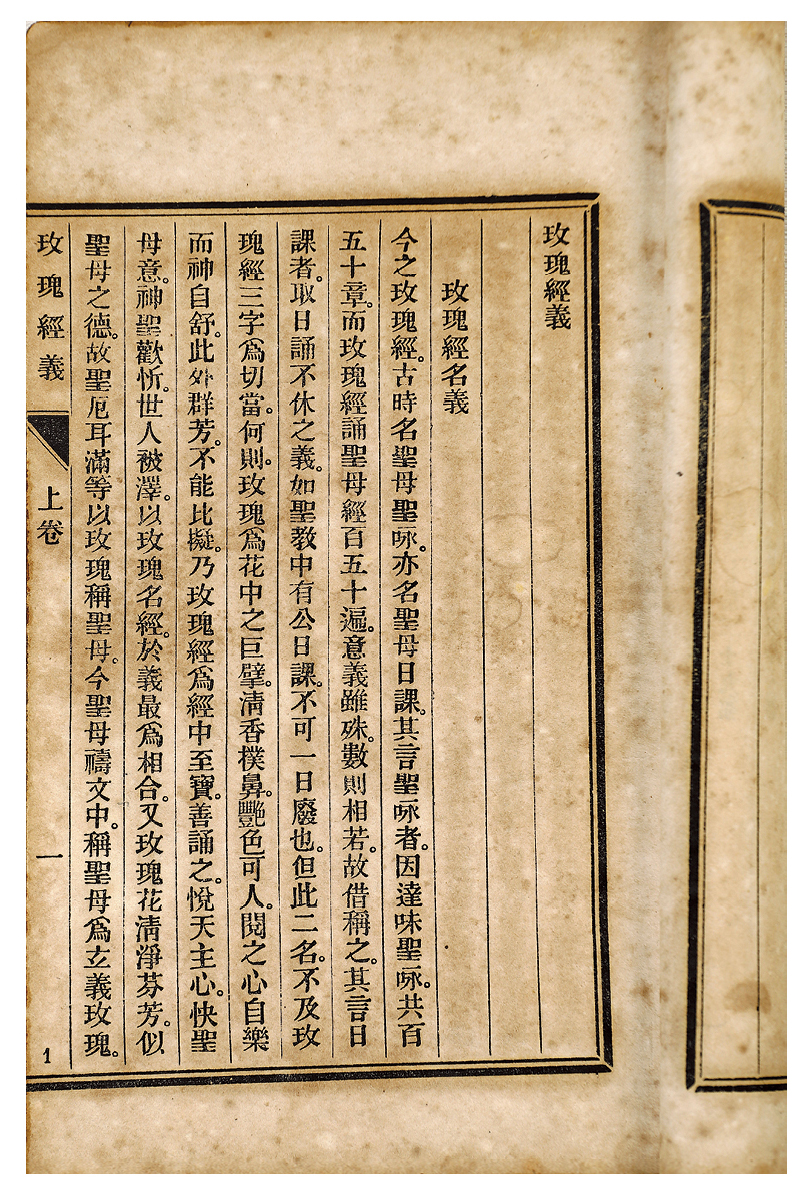 玫瑰經義
玫瑰經名義
今之玫瑰經。古時名聖母聖咏。亦名聖母日課。其言聖咏者。因達味聖咏。共百
五十章。而玫瑰經誦聖母經百五十遍。意義雖殊。數則相若。故借稱之。其言日
課者。取日誦不休之義。如聖教中有公日課。不可一日廢也。但此二名。不及玫
瑰經三字爲切當。何則。玫瑰爲花中之巨擘。淸香樸鼻。豔色可人。閱之心自樂
而神自舒。此外群芳。不能比擬。乃玫瑰經爲經中至寶。善誦之。悅天主心。快聖
母意。神聖歡忻。世人被澤。以玫瑰名經。於義最爲相合。又玫瑰花淸淨芬芳。似
聖母之德。故聖厄耳滿等以玫瑰稱聖母。今聖母禱文中。稱聖母爲玄義玫瑰。
玫瑰經義 上卷 一 1